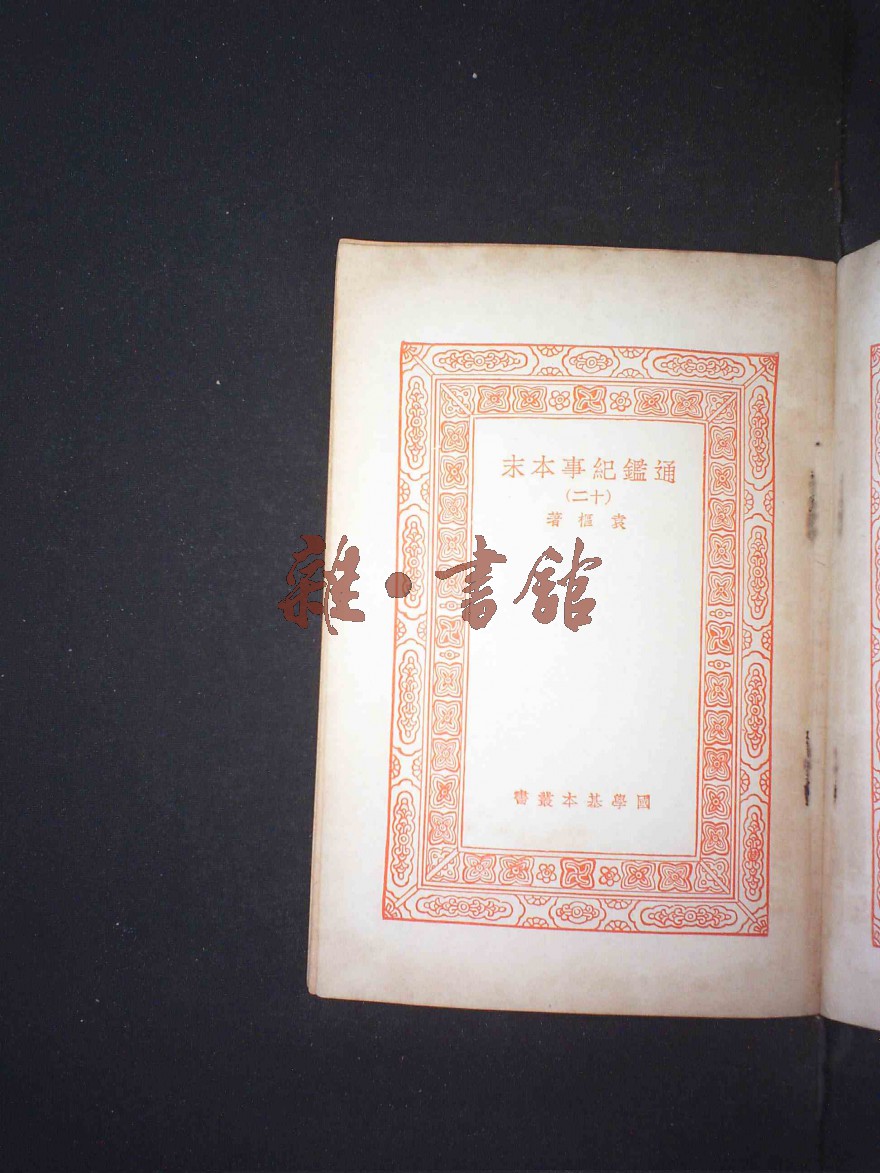 通鑑紀事本末
(十二)
袁樞著
雜·書館
國學基本叢書